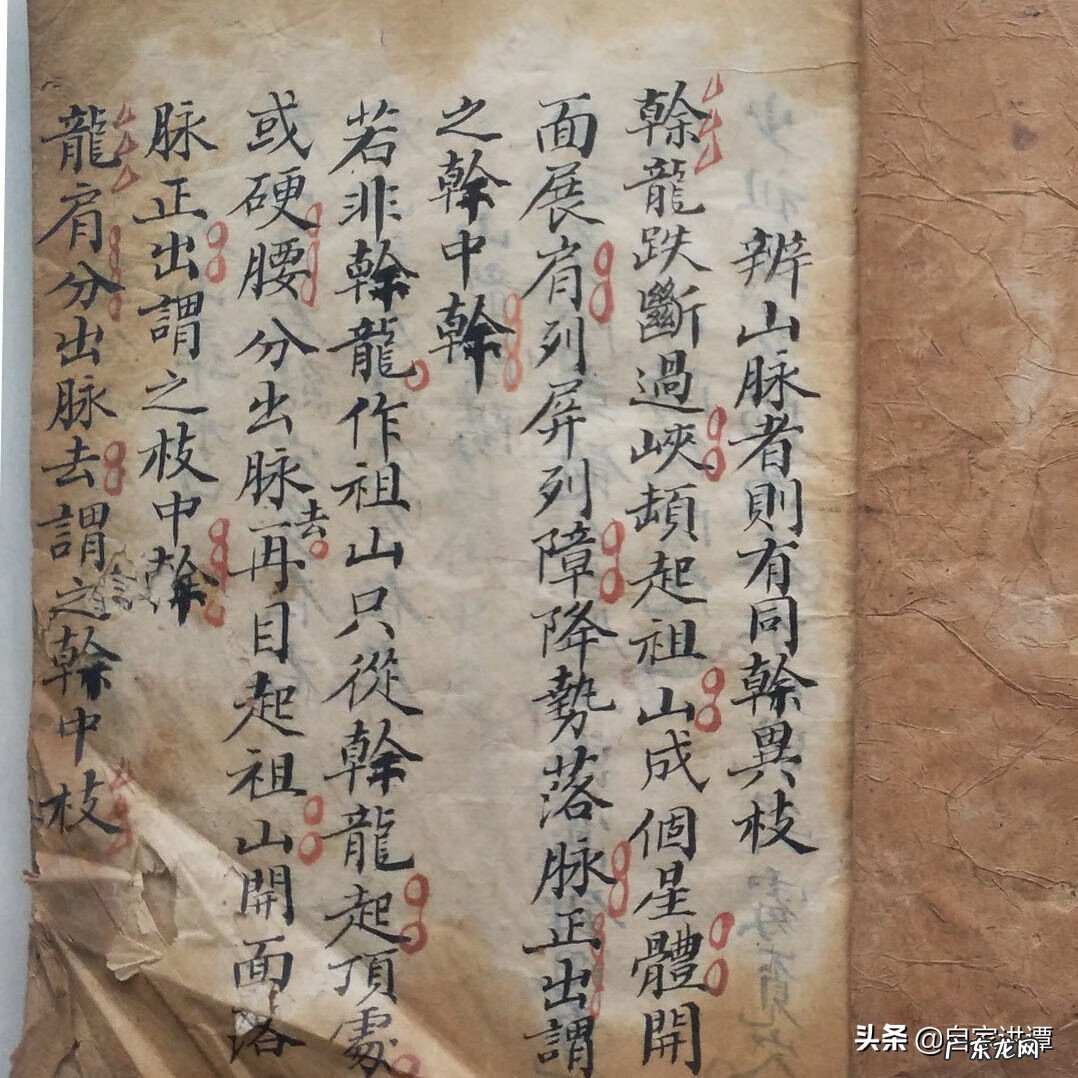 辨山脉者則有同幹異枝
幹龍跌斷過峽頓起祖山成個星體開
面展肩列屏列障降勢落脉正出謂
之幹中幹
若非幹龍作祖山只從幹龍起頂處
或硬腰分出脉去再目起祖山開面落
脉正出謂之枝中幹
龍肩分出脉去謂之幹中枝
头条 @自家洪谭
卢东龙网